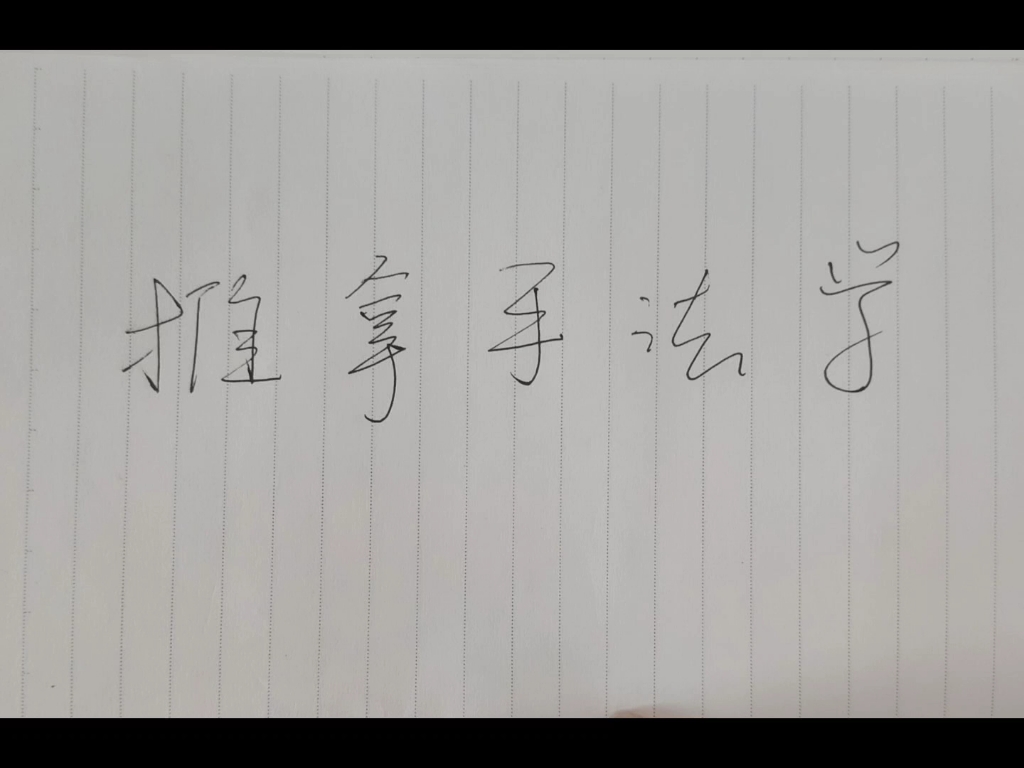 推拿手法学